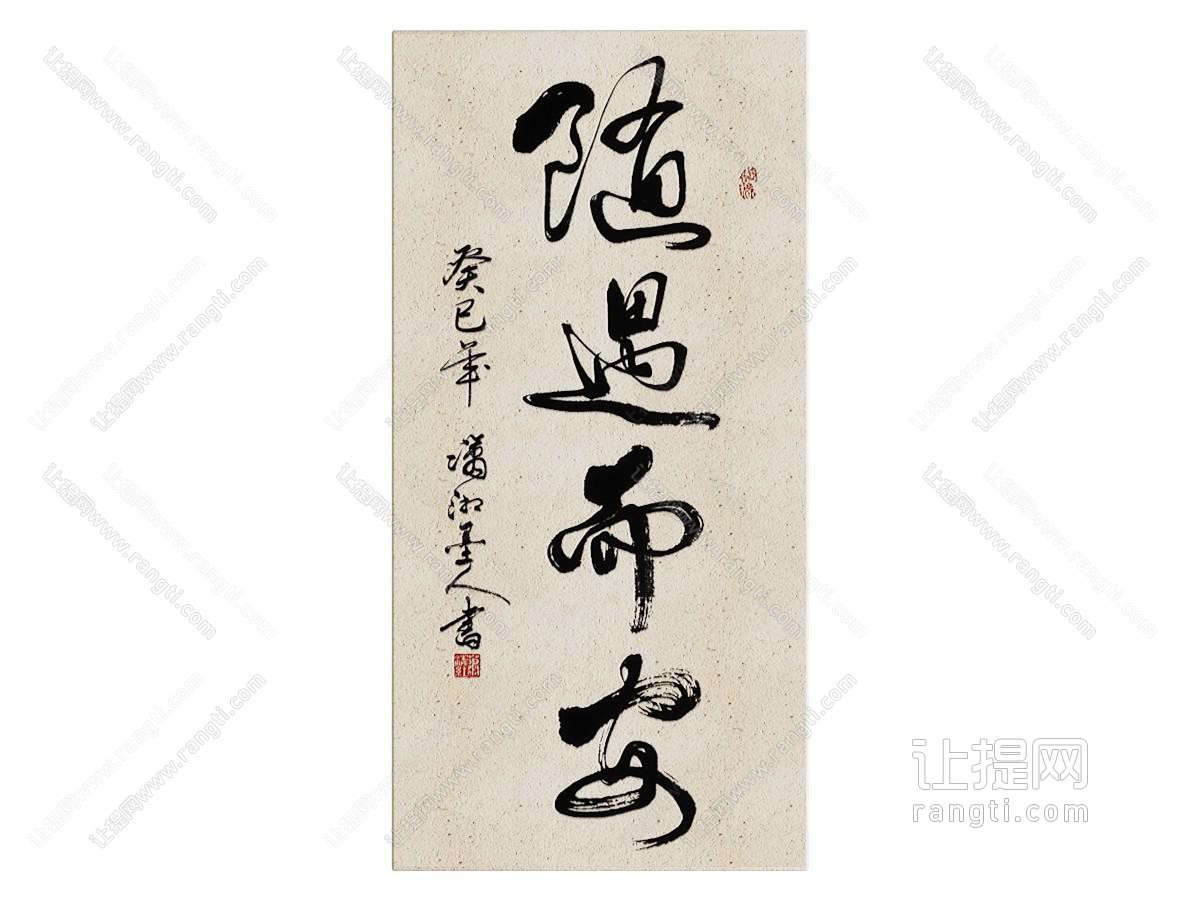 随遇而安
癸巳年 潇湘墨人书
让提网
rangti.com
让提网www.rangti.com